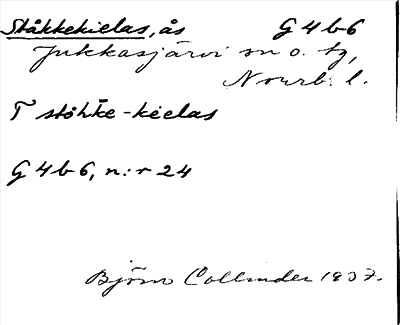 Ståkkekielas, ås G 4 b 6
Jukkasjärvi sn o. tg,
Norrb. l.
T ståhke-kielas
G 4 b 6, n:r 24
Björn Collinder 1937.